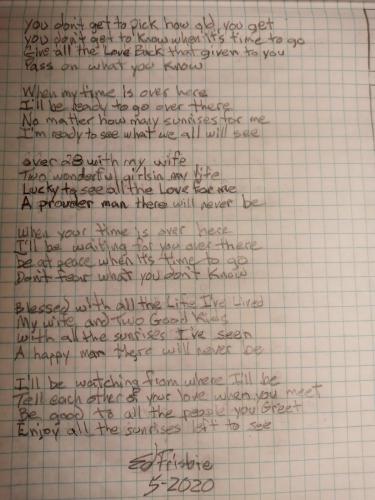 You don't get to Pick how old you get
you don't get to Know when it's time to go
Give all the Love Back that given to you
Pass on what you Know
When my time is over here
I'll be ready to go over there
No matter how many sunrises for me
I'm ready to see what we all will see
over 28 with my wife
Two wonderful girls in my life
Lucky to see all the Love for me
A prouder man there will never be
When your time is over here
I'll be waiting for you over there
be at peace when it's time to go
Don't fear what you don't Know
Blessed with all the Life I've Lived
My wife and Two Good Kids
with all the sunrises I've seen
A happy man there will never be
I'll be watching from where I'll be
Tell each other of your love when you meet
Be good to all the people you Greet
Enjoy all the sunrises left to see
Ed Frisbie
5-2020